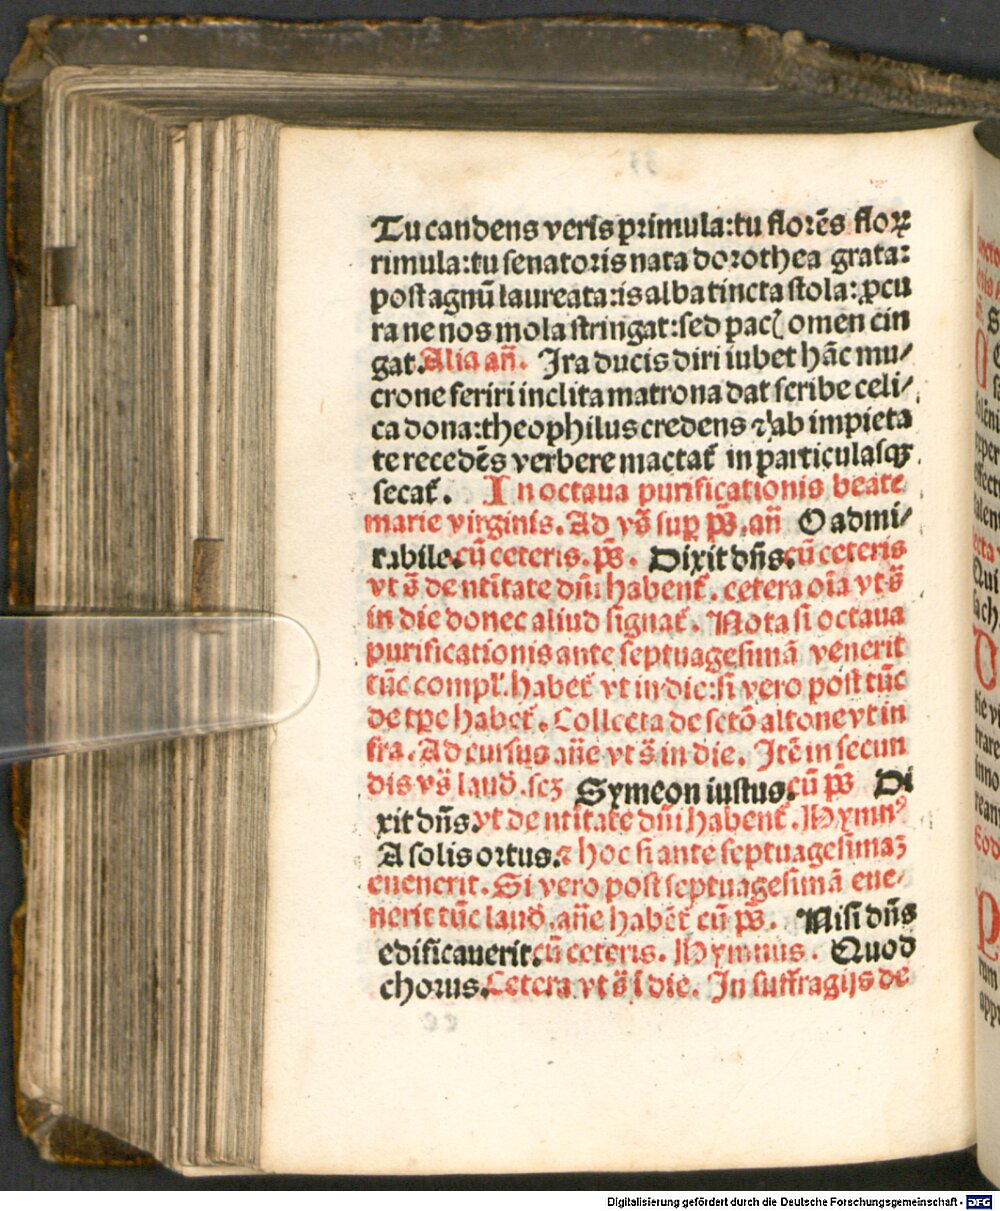 Tu candens veris primula: tu florēs floꝝ
rimula: tu senatoris nata dorothea grata:
post agnū laureata: is alba tincta stola: ꝓcu
ra ne nos mola stringat: sed pacꝭ omen cin
gat. Alia añ. Ira ducis diri iubet hāc mu⸗
crone feriri inclita matrona dat scribe celi⸗
ca dona: theophilus credens ⁊ ab impieta
te recedēs verbere mactat᷑ in particulasqꝫ
secat᷑. In octaua purificationis beate
marie virginis. Ad vs̄ sup ps̄. añ O admi⸗
rabile. cū ceteris. ps̄. Dixit dñs. cū ceteris
vt s̄ de ntītate dñi habent᷑. cetera oīa vt s̄
in die donec aliud signat᷑. Nota si octaua
purificationis ante septuagesimā venerit
tūc compl̕. habet᷑ vt in die: si vero post tūc
de tꝑe habet᷑. Collecta de sctō altone vt in
fra. Ad cursus añe vt s̄ in die. Itē in secun
dis vs̄ laud̕. scꝫ Symeon iustus. cū ps̄ Di
xit dñs. vt de ntītate dñi habent᷑. Hymnꝰ
A solis ortus. ⁊ hoc si ante septuagesimaꝫ
euenerit. Si vero post septuagesimā eue⸗
nerit tūc laud̕. añe habēt cū ps̄. Nisi dñs
edificauerit. cū ceteris. Hymnus. Quod
chorus. Cetera vt s̄ ī die. In suffragijs de
Digitalisierung gefördert durch die Deutsche Forschungsgemeinschaft - DFG